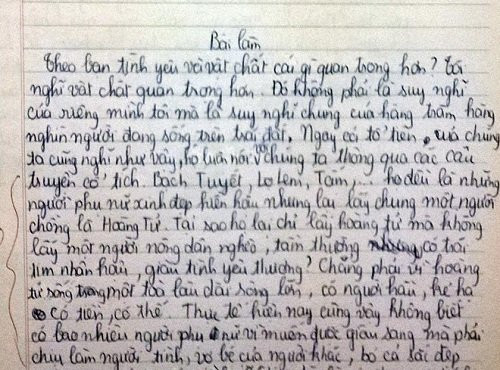 Bài làm
Theo bạn tình yêu và vật chất cái gì quan trọng hơn? Tôi
nghĩ vật chất quan trọng hơn. Đó không phải là suy nghĩ
của riêng mình tôi mà là suy nghĩ chung của hàng trăm hàng
nghìn người đang sống trên trái đất. Ngay cả tổ tiên của chúng
ta cũng nghĩ như vậy, họ luôn nói với chúng ta thông qua các câu
truyện cổ tích. Bạch Tuyết, Lọ Lem, Tấm,... họ đều là những
người phụ nữ xinh đẹp hiền hậu nhưng lại lấy chung một người
chồng là Hoàng Tử. Tại sao họ lại chỉ lấy hoàng tử mà không
lấy một người nông dân nghèo, tầm thường có trái
tim nhân hậu, giàu tình yêu thương? Chẳng phải vì hoàng
tử sống trong một toà lâu đài sộng lớn, có người hầu, kẻ hạ
có tiền, có thế. Thực tế hiện nay cũng vậy không biết
có bao nhiêu người phụ nữ vì muốn được giàu sang mà phải
chịu làm người tình, vợ bé của người khác, bỏ cả sắc đẹp